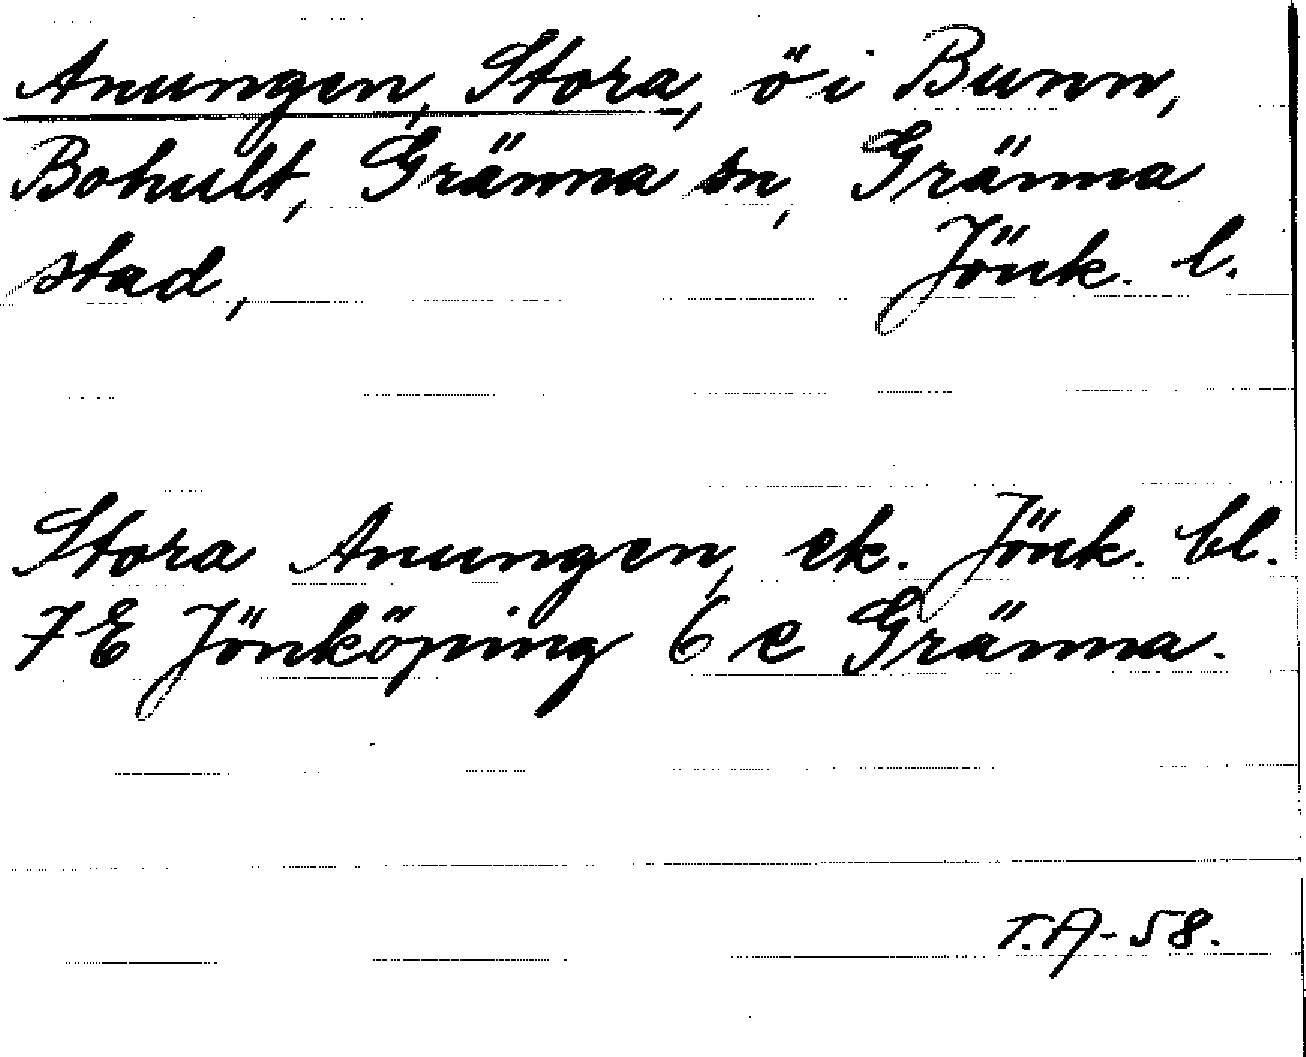 Anungen, Stora, ö i Bunn,
Bohult, Gränna sn, Gränna
stad, Jönk. l.
Stora Anungen, ek. Jönk. bl.
7E Jönköping 6 e Gränna.
T.A-58.